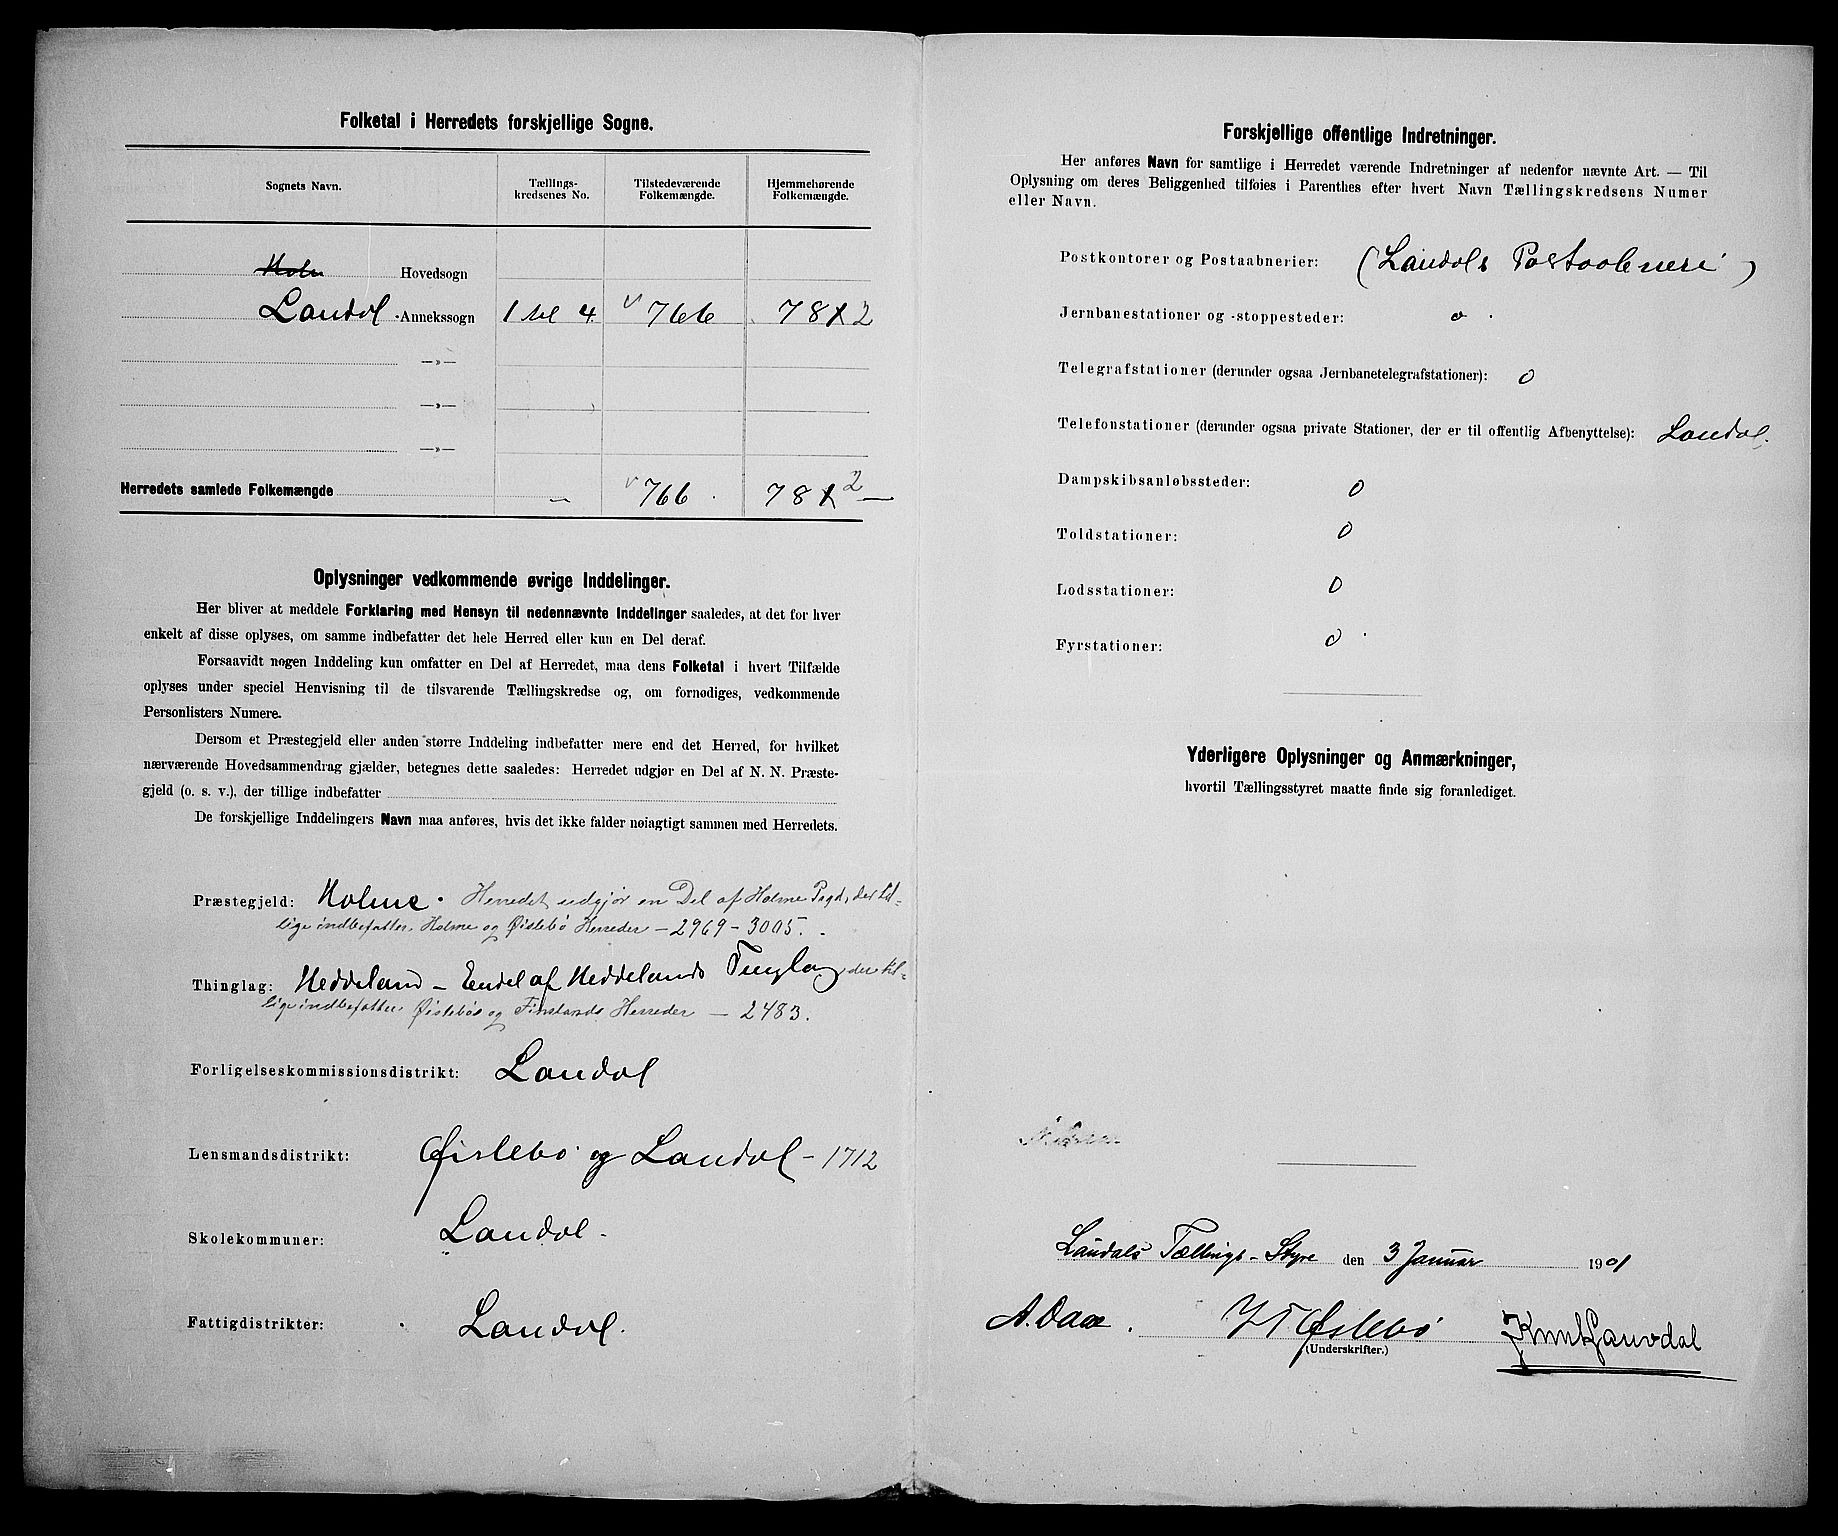 Folketal i Herredets forskjellige Sogne.
Sognets Navn.
Tællings-
kredsenes No.
Tilstedeværende
Folkemængde.
Hjemmehørende
Folkemængde.
Hovedsogn
Laudal Annekssogn 1 til 4 766 781 2
—»—
—»—
—»—
Herredets samlede Folkemængde — 766 781 2 —
Oplysninger vedkommende øvrige Inddelinger.
Her bliver at meddele Forklaring med Hensyn til nedennævnte Inddelinger saaledes, at det for hver
enkelt af disse oplyses, om samme indbefatter det hele Herred eller kun en Del deraf.
Forsaavidt nogen Inddeling kun omfatter en Del af Herredet, maa dens Folketal i hvert Tilfælde
oplyses under speciel Henvisning til de tilsvarende Tællingskredse og, om fornødiges, vedkommende
Personlisters Numere.
Dersom et Præstegjeld eller anden større Inddeling indbefatter mere end det Herred, for hvilket
nærværende Hovedsammendrag gjælder, betegnes dette saaledes: Herredet udgjør en Del af N. N. Præste-
gjeld (o. s. v.), der tillige indbefatter
De forskjellige Inddelingers Navn maa anføres, hvis det ikke falder nøiagtigt sammen med Herredets.
Præstegjeld: Holme. Herredet udgjør en Del af Holme Pgd., der til-
lige indbefatter Holme og Øislebø Herreder – 2969 – 3005.
Thinglag: Heddeland – Endel af Heddelands Tinglag, der til-
lige indbefatter Øislebø og Finslands Herreder – 2483.
Forligelseskommissionsdistrikt: Laudal
Lensmandsdistrikt: Øislebø og Laudal – 1712
Skolekommuner: Laudal.
Fattigdistrikter: Laudal.
Forskjellige offentlige Indretninger.
Her anføres Navn for samtlige i Herredet værende Indretninger af nedenfor nævnte Art. — Til
Oplysning om deres Beliggenhed tilføies i Parenthes efter hvert Navn Tællingskredsens Numer
eller Navn.
Postkontorer og Postaabnerier: (Laudals Postaabneri)
Jernbanestationer og -stoppesteder: 0
Telegrafstationer (derunder ogsaa Jernbanetelegrafstationer): 0
Telefonstationer (derunder ogsaa private Stationer, der er til offentlig Afbenyttelse): Laudal.
Dampskibsanløbssteder: 0
Toldstationer: 0
Lodsstationer: 0
Fyrstationer: 0
Yderligere Oplysninger og Anmærkninger,
hvortil Tællingsstyret maatte finde sig foranlediget.
Laudals Tællings-Styre den 3 Januar 1901
A. Daae. Øslebø Knut Lauvdal
(Underskrifter.)